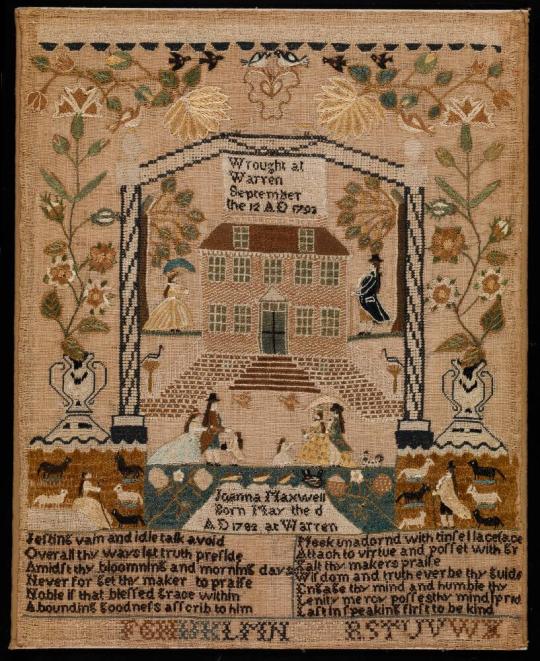 Wrought at
Warren
September
the 12 A D 1793
Joanna Maxwell
Born May the d
A D 1782 at Warren
Jesting vain and idle talk avoid
Over all thy ways let truth preside
Amidst thy bloomning and morning days
Never for get thy maker to praise
Noble if that blessed grace within
A bounding goodness asscrib to him
Meek unadornd with tinsel lace
Attach to virtue and posset with
thy makers praise
Wisdom and truth ever be thy guide
Engage thy mind and humble thy
Lenity mercy possess thy mind
Last in speaking first to be kind
FGHIKLMN RSTUVWX